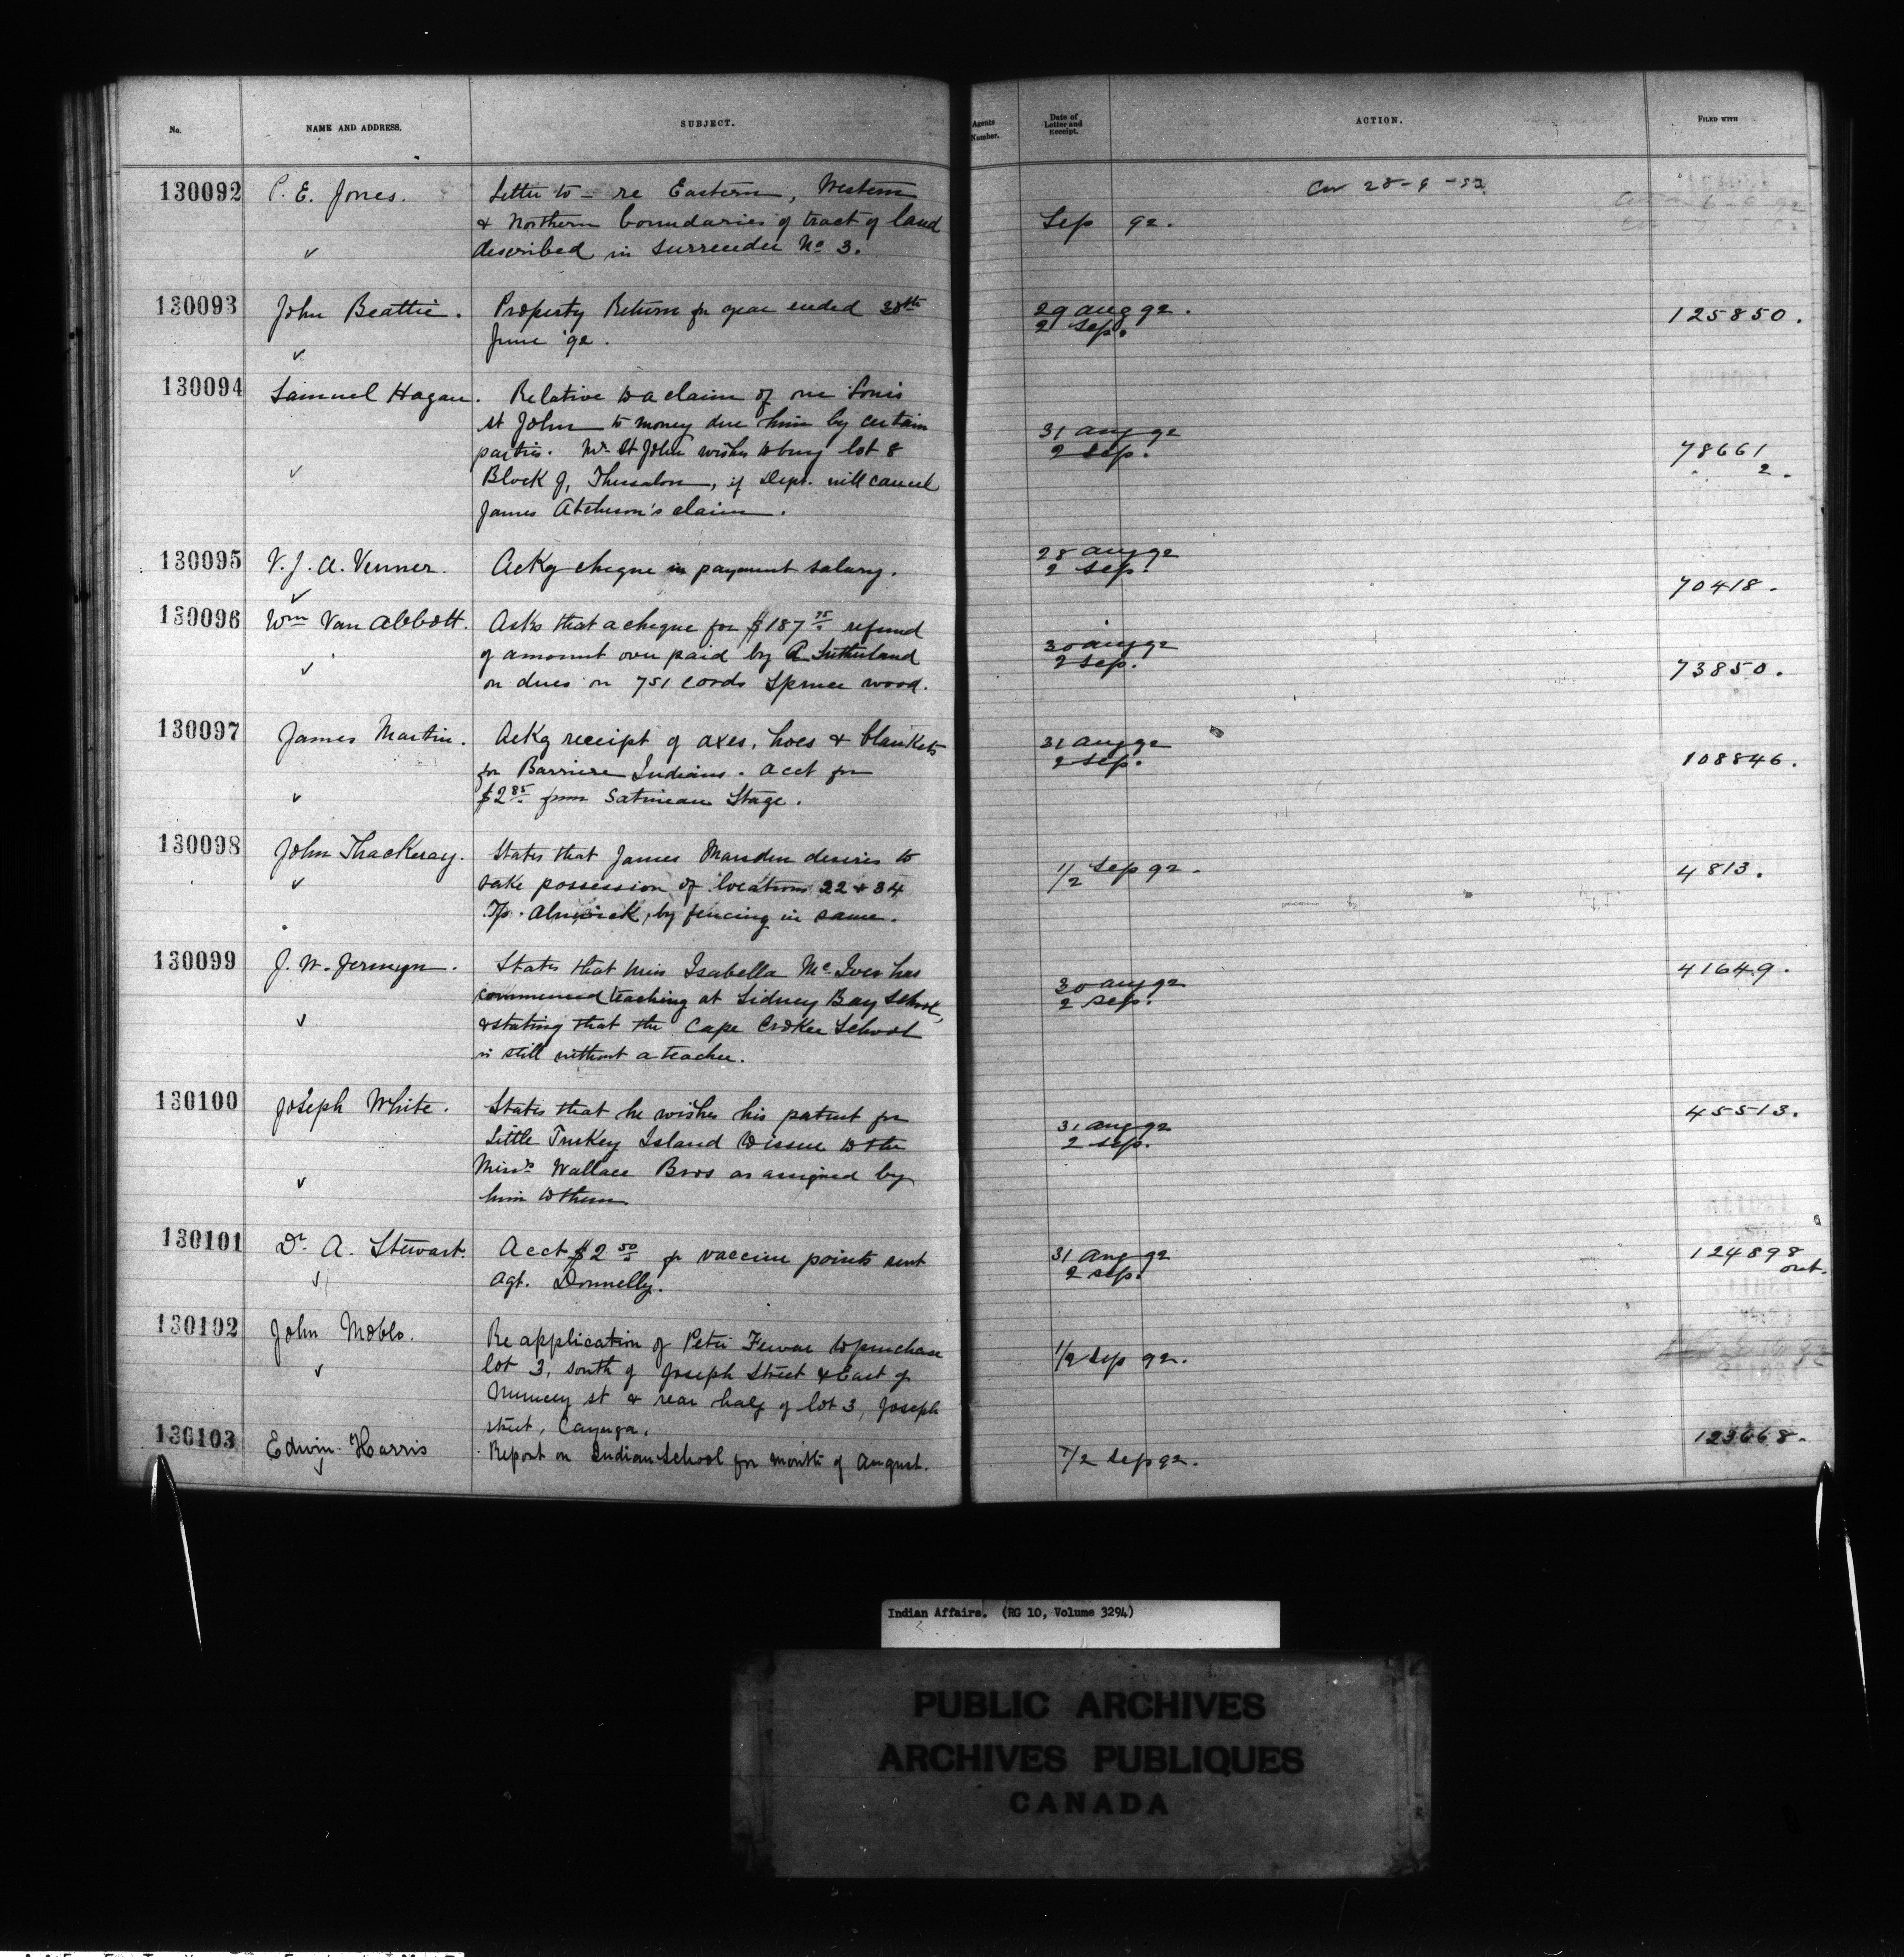 No. NAME AND ADDRESS. SUBJECT. Agents Number. Date of Letter and Receipt. ACTION. FILED WITH
130092 P. E. Jones. Letter to - re Eastern, Western
& Northern boundaries of tract of land
described in surrender No 3.
Sep 92.
130093 John Beattie. Property Return for year ended 30th
June '92.
29 Aug 92.
2 Sep.
125850.
130094 Samuel Hagan. Relative to a claim of one Louis
St John to money due him by certain
parties. Mr St John wishes to buy lot 8
Block J, Thessalon, if Dept. will cancel
James Atcheson's claim.
31 Aug 92
2 Sep.
78661
2.
130095 V. J. A. Venner. Ackg cheque in payment salary.
28 Aug 92
2 Sep.
70418.
130096 Wm Van Abbott. Asks that a cheque for $187 75 refund
of amount over paid by A Sutherland
on dues on 751 cords Spruce wood.
30 Aug 92
2 Sep.
73850.
130097 James Martin. Ackg receipt of axes, hoes & blankets
for Barriere Indians. Acct for
$2 85 from Gatineau Stage.
31 Aug 92
2 Sep.
108846.
130098 John Thackeray. States that James Marsden desires to
take possession of locations 22 & 34
Tp. Alnwick, by fencing in same.
1/2 Sep 92.
4813.
130099 J. W. Jermyn. States that Miss Isabella McIver has
commenced teaching at Sidney Bay School,
& stating that the Cape Croker School
is still without a teacher.
30 Aug 92
2 Sep.
41649.
130100 Joseph White. States that he wishes his patent for
Little Turkey Island to issue to the
Wallace Bros as assigned by
him to them
31 Aug 92
2 Sep.
45513.
130101 Dr. A. Stewart. Acct $2 50 for vaccine points sent
Agt. Donnelly.
31 Aug 92
2 Sep.
124898
out.
130102 John Moblo. Re application of Peter to purchase
lot 3, south of Joseph Street & East of
st & rear half of lot 3, Joseph
street, Cayuga.
1/2 Sep 92.
130103 Edwin Harris Report on Indian School for month of August.
1/2 Sep 92.
123668.
Indian Affairs. (RG 10, Volume 3294)
PUBLIC ARCHIVES
ARCHIVES PUBLIQUES
CANADA